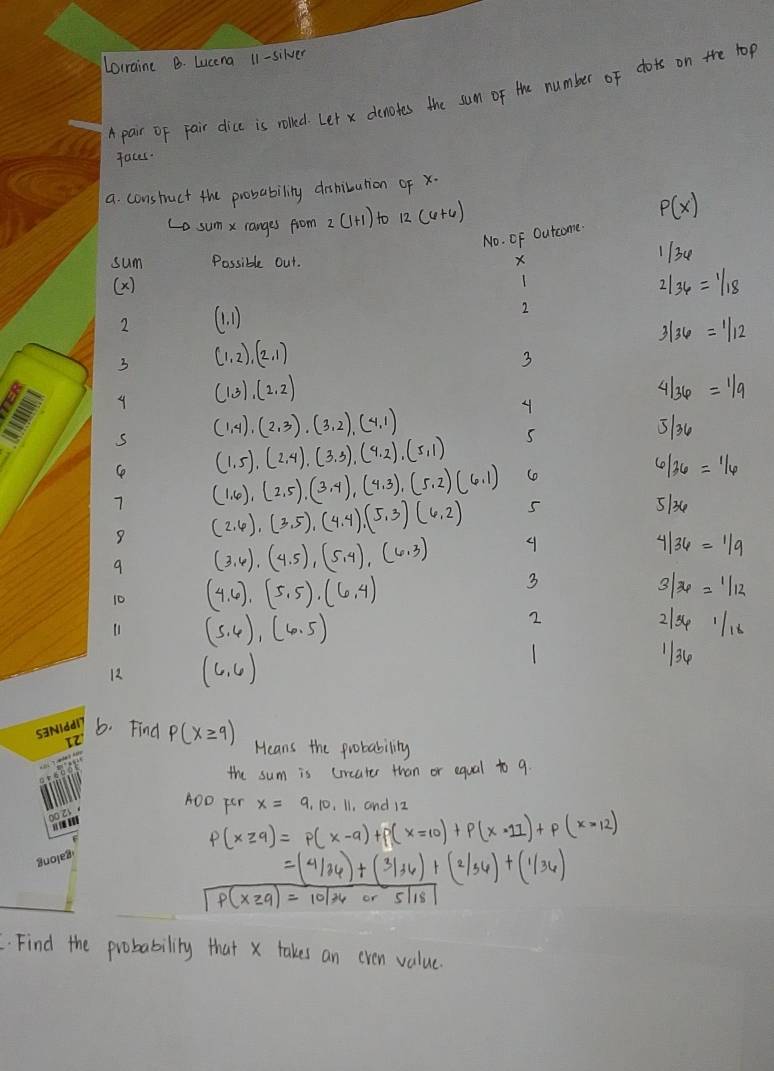 Lorraine B. Lucena 11-silver
A pair of fair dice is rolled. Let x denotes the sum of the number of dots on the top
faces.
a. construct the probability distribution of x.
↳ sum x ranges from 2 (1+1) to 12 (6+6)
sum (x) Possible out. No. of Outcome x P(x)
2 (1,1) 1 1/36
3 (1,2), (2,1) 2 2/36 = 1/18
4 (1,3), (2,2) 3 3/36 = 1/12
5 (1,4), (2,3), (3,2), (4,1) 4 4/36 = 1/9
6 (1,5), (2,4), (3,3), (4,2), (5,1) 5 5/36
7 (1,6), (2,5), (3,4), (4,3), (5,2) (6,1) 6 6/36 = 1/6
8 (2,6), (3,5), (4,4), (5,3) (6,2) 5 5/36
9 (3,6), (4,5), (5,4), (6,3) 4 4/36 = 1/9
10 (4,6), (5,5), (6,4) 3 3/36 = 1/12
11 (5,6), (6,5) 2 2/36 1/18
12 (6,6) 1 1/36
b. Find P(x≥9) Means the probability
the sum is Greater than or equal to 9.
ADD for x = 9, 10, 11, and 12
P(x≥9) = P(x-9) + P(x=10) + P(x=11) + P(x=12)
= (4/36) + (3/36) + (2/36) + (1/36)
P(x≥9) = 10/36 or 5/18
c. Find the probability that x takes an even value.
TER
LIPPINES
21
12 00
igalong